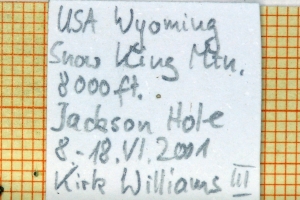 USA Wyoming
Snow King Mtn.
8000ft.
Jackson Hole
8-18.VI.2001
Kirk Williams III